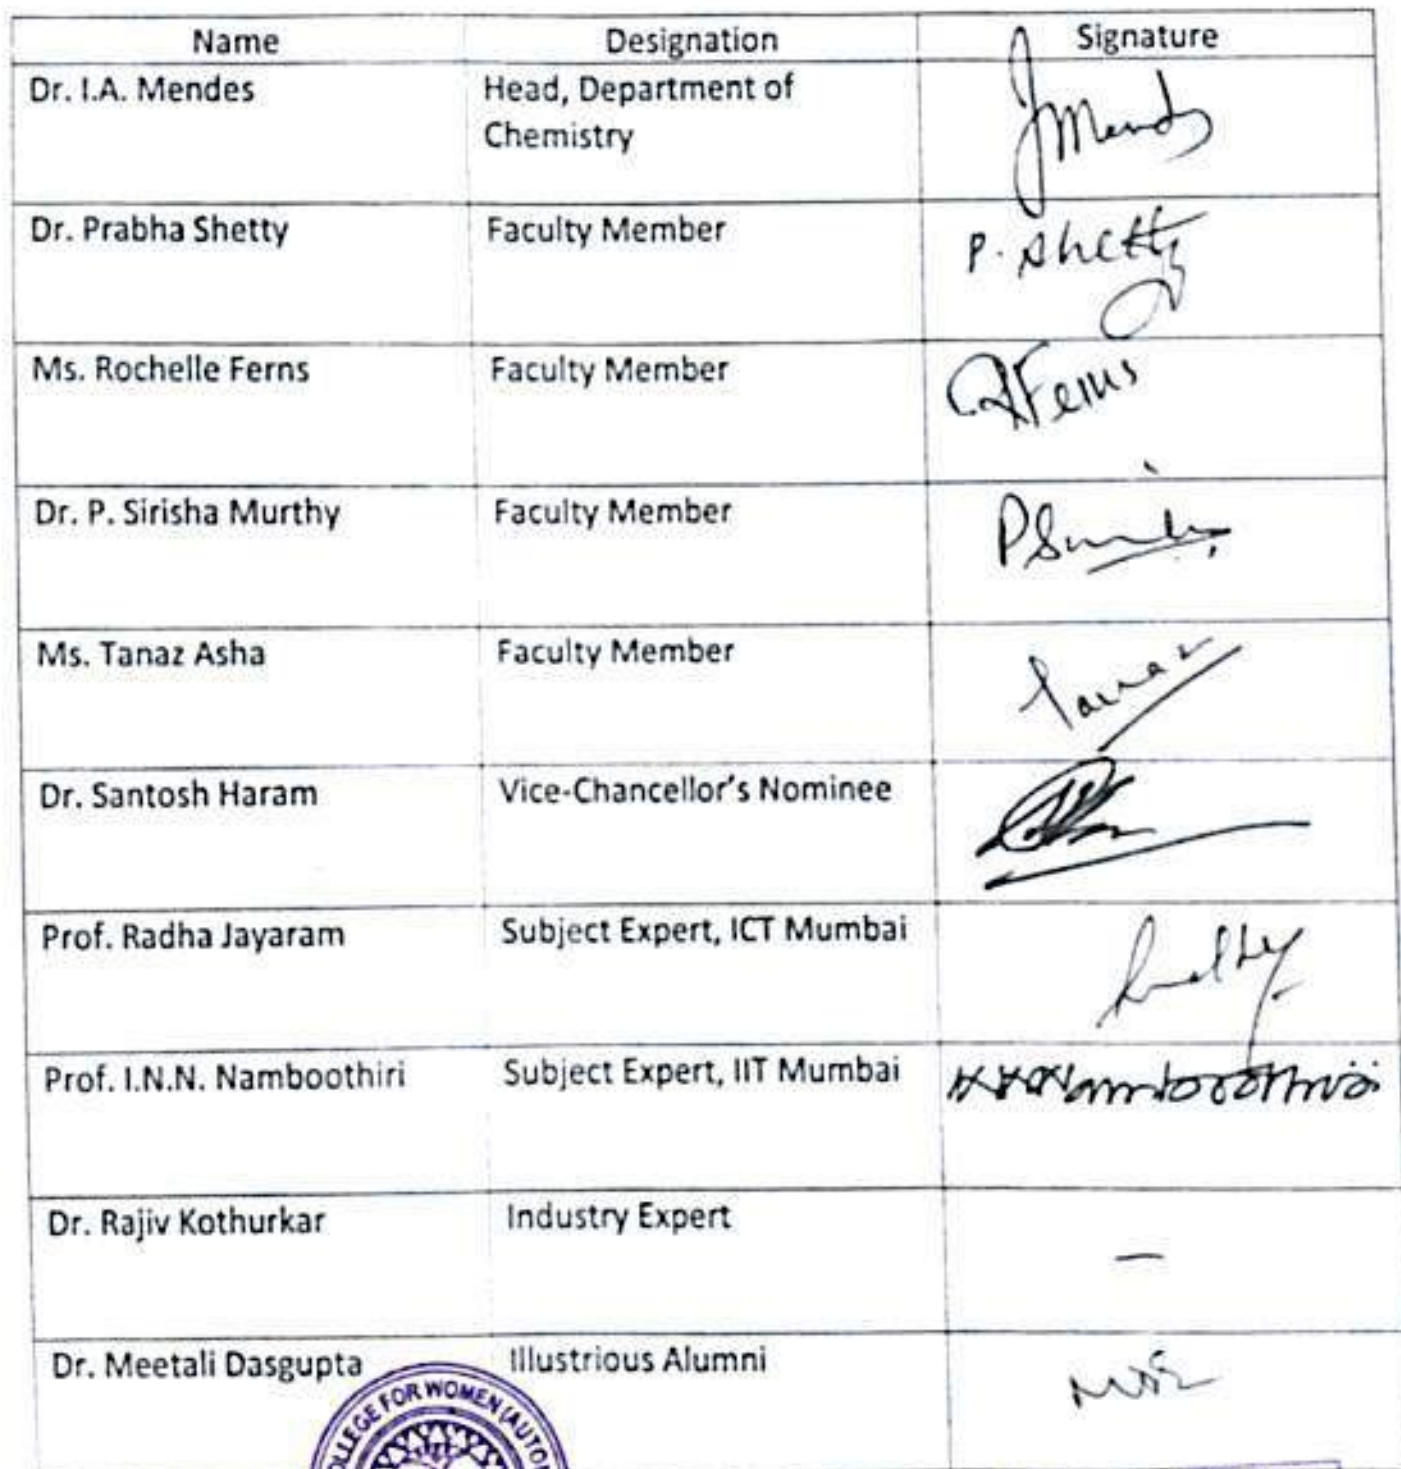 Name Designation Signature
Dr. I.A. Mendes Head, Department of
Chemistry
Dr. Prabha Shetty Faculty Member P. Shetty
Ms. Rochelle Ferns Faculty Member RFerns
Dr. P. Sirisha Murthy Faculty Member
Ms. Tanaz Asha Faculty Member Tanaz
Dr. Santosh Haram Vice-Chancellor's Nominee
Prof. Radha Jayaram Subject Expert, ICT Mumbai
Prof. I.N.N. Namboothiri Subject Expert, IIT Mumbai
Dr. Rajiv Kothurkar Industry Expert —
Dr. Meetali Dasgupta Illustrious Alumni
OLLEGE FOR WOMEN (AUTON